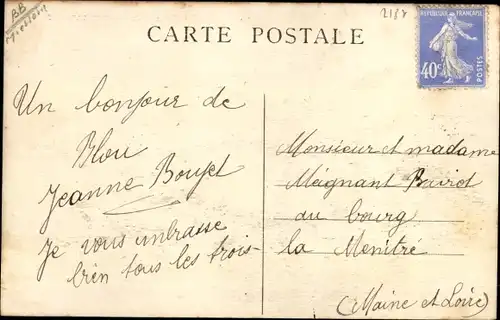 BB
2184
CARTE POSTALE
REPUBLIQUE FRANÇAISE
40c
POSTES
Un bonjour de
Blou
Jeanne Bouget
Je vous embrasse
bien tous les trois
Monsieur et madame
Méignant
au bourg
la Menitré
(Maine et Loire)